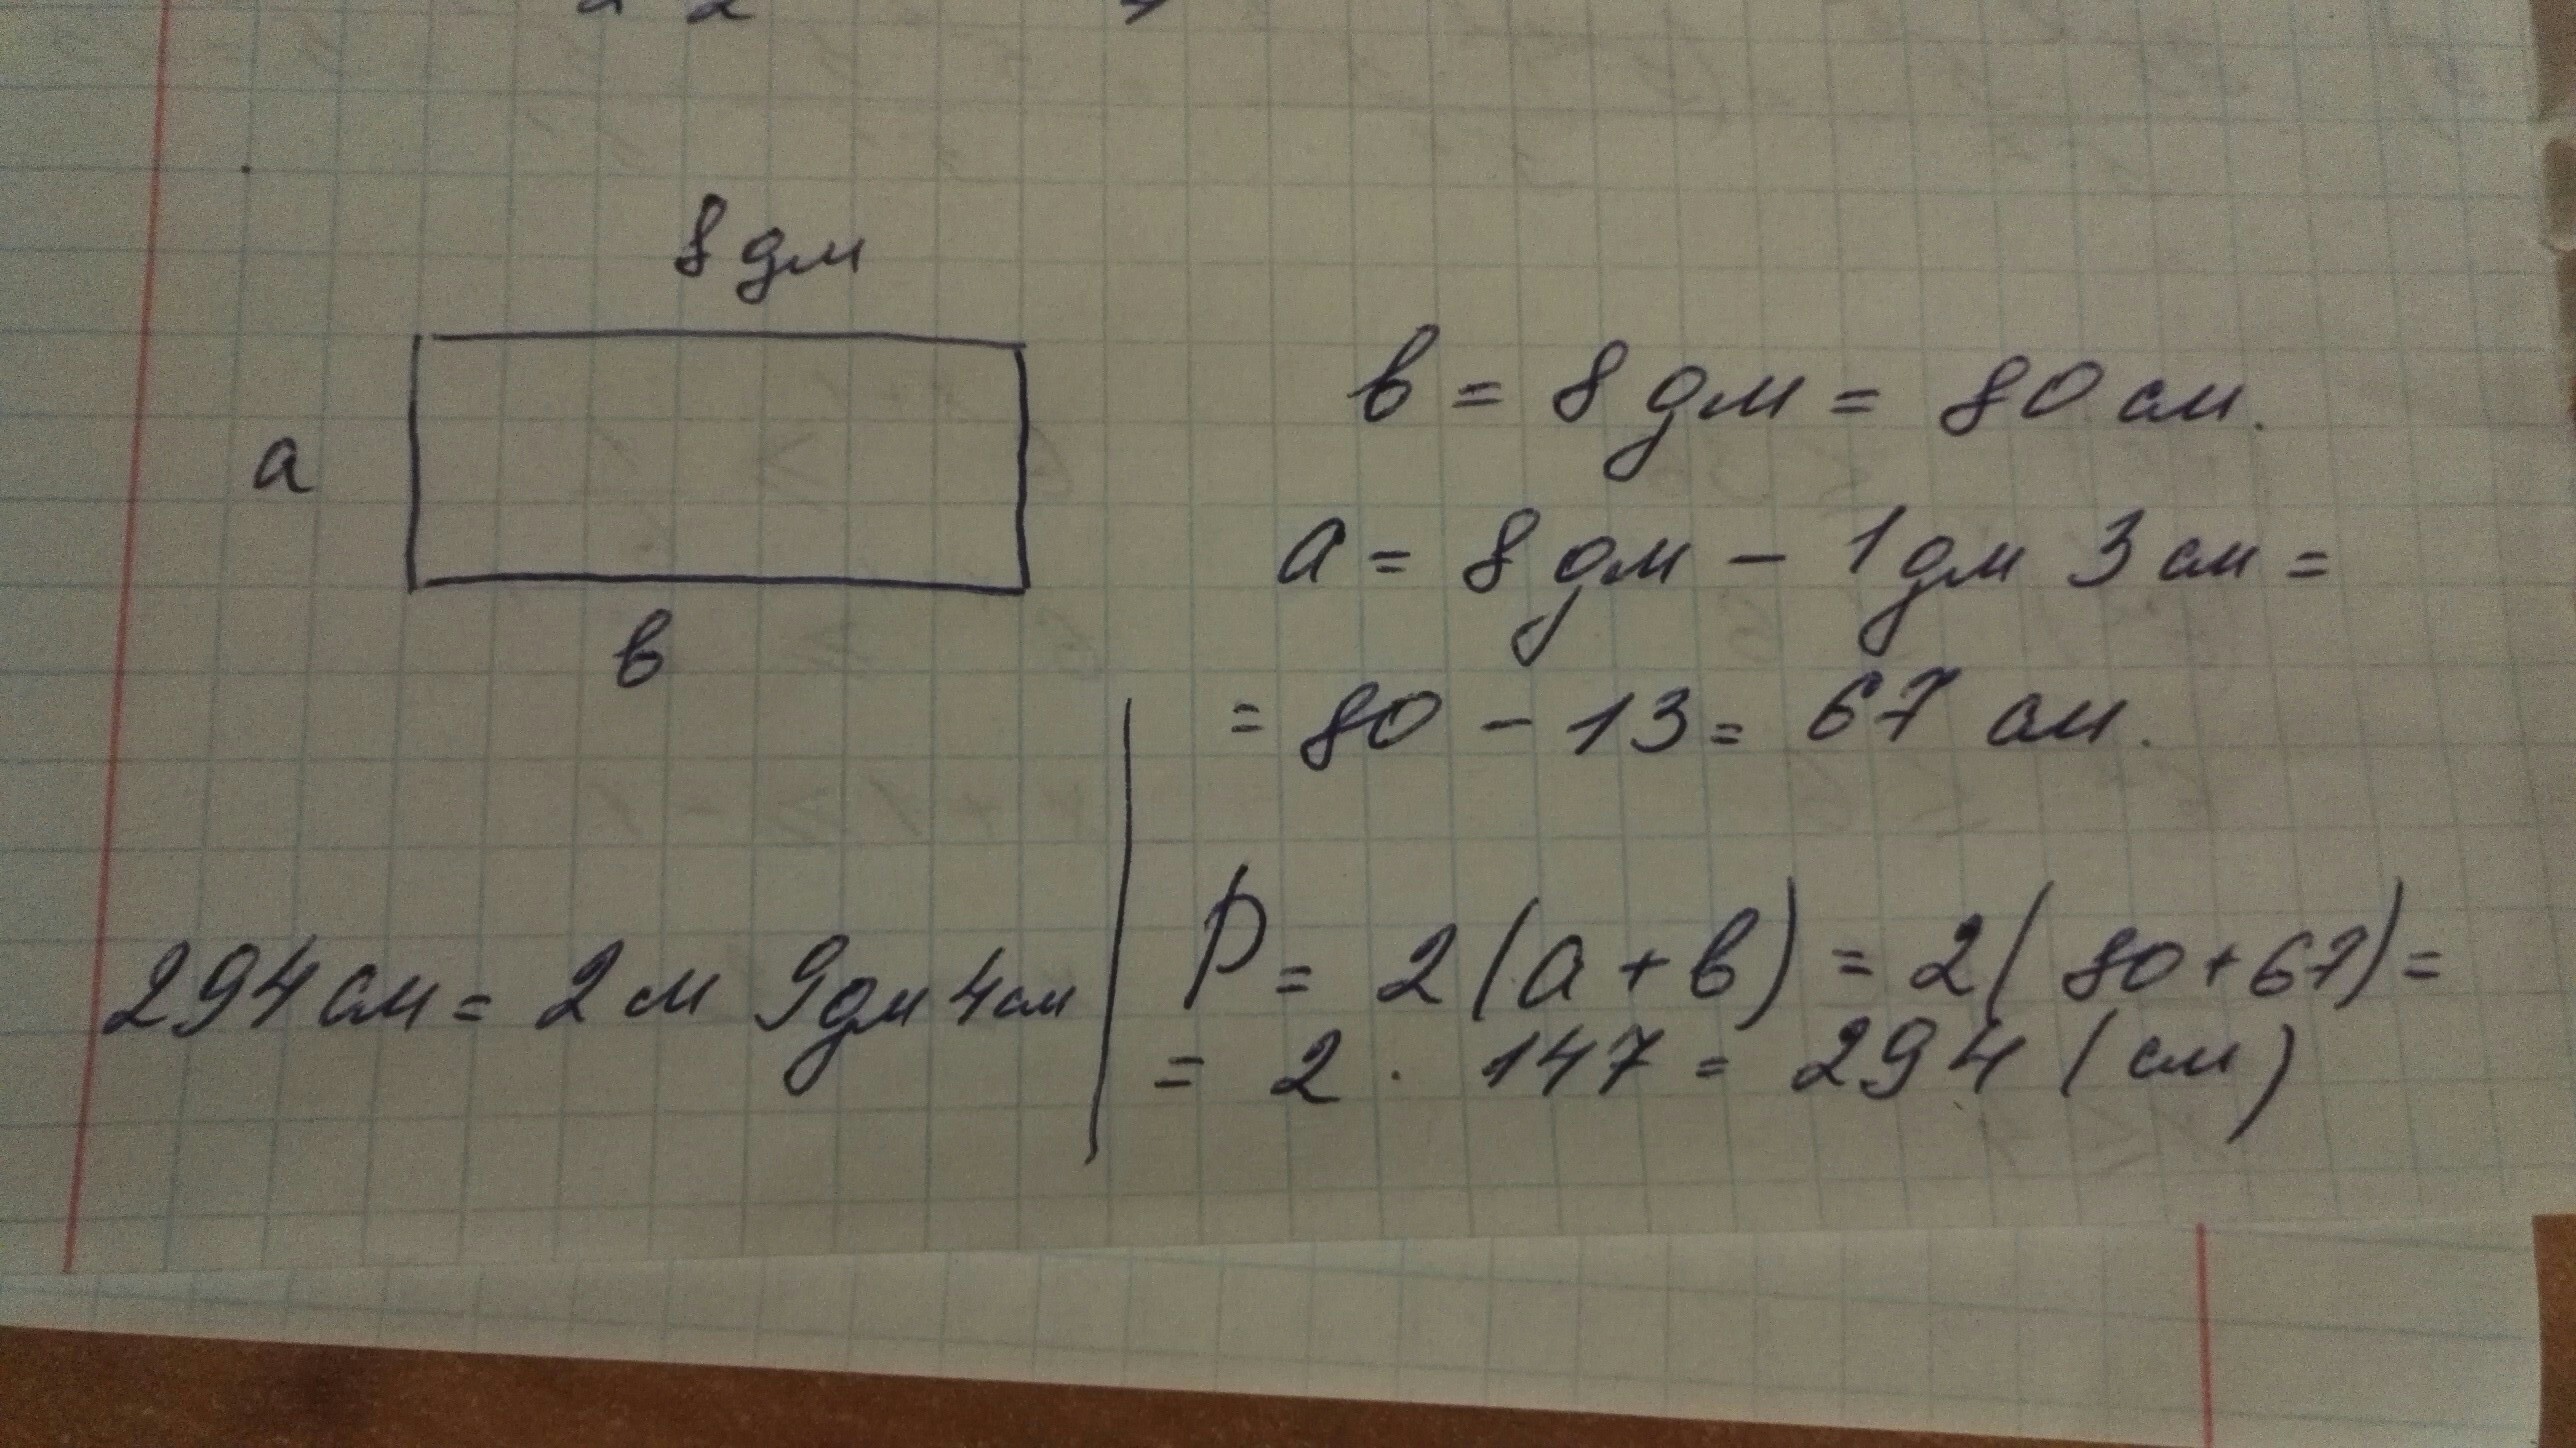 8 дм
а
в
в = 8 дм = 80 см.
а = 8 дм - 1 дм 3 см =
= 80 - 13 = 67 см.
294 см = 2 м 9 дм 4 см
P = 2 (а + в) = 2 ( 80 + 67) =
= 2 . 147 = 294 ( см )